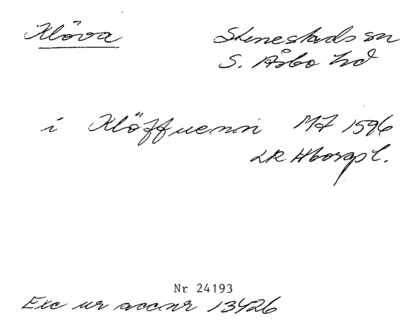 Klöva
Stenestads sn
S. Åsbo hd
i Klöffuenn MJ 1596
LR Hborgs l.
Nr 24193
Exc ur accnr 13426